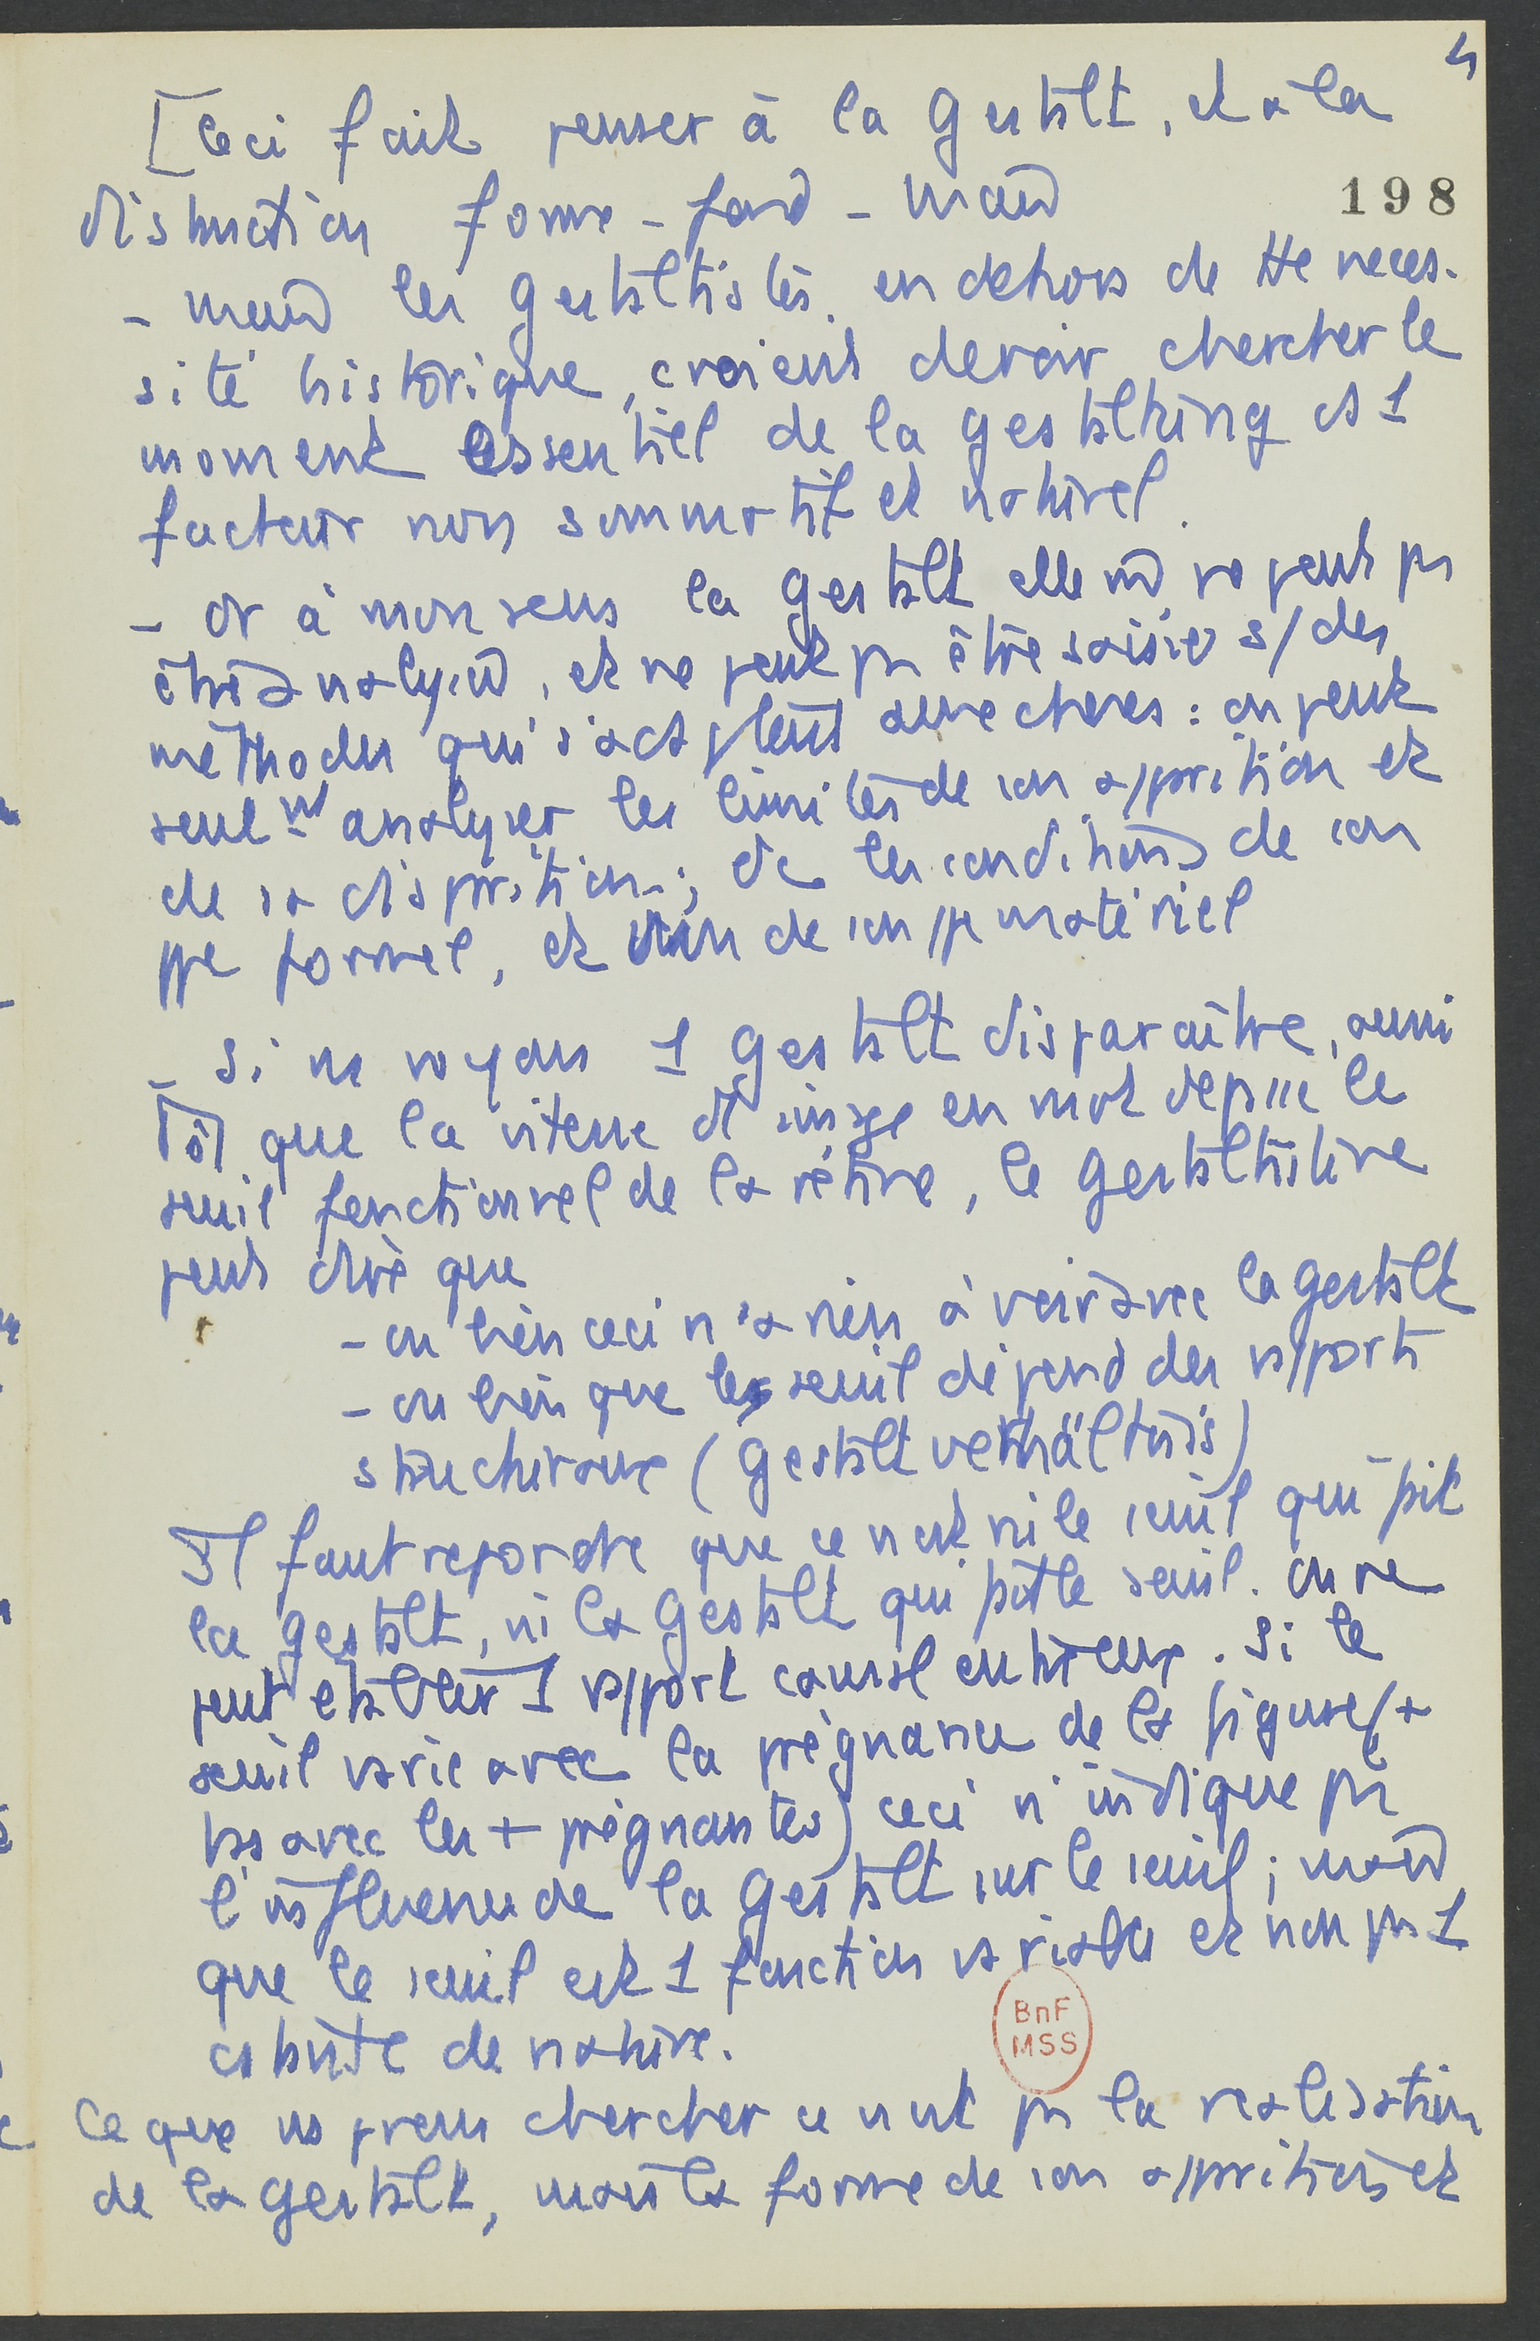 4
[Ceci fait penser à la Gestalt, et à la
distinction forme - fond - mais
198
- mais les Gestaltistes, en dehors de tte néces-
sité historique, croient devoir chercher le
moment essentiel de la gestaltung ds 1
facteur non sommatif et naturel.
- or à mon sens la Gestalt elle m̂ ne peut pas
être analysée, et ne peut pas être saisie p/ des
méthodes qui s'adaptent aux choses : on peut
seulmt analyser les limites de son apparition et
de sa disparition ; dc les conditions de son
ppe formel, et non de son ppe matériel
- Si ns voyons 1 Gestalt disparaître, aussi
tôt que la vitesse d'image en mvt dépasse le
seuil fonctionnel de la rétine, le Gestaltiste ne
peut dire que
- ou bien ceci n'a rien à voir avec la Gestalt
- ou bien que le seuil dépend des rapports
structuraux (Gestaltverhältnis)
Il faut répondre que ce n'est ni le seuil qui fait
la gestalt, ni la Gestalt qui fait le seuil. On ne
peut établir 1 rapport causal entre eux. Si le
seuil varie avec la prégnance de la figure (+
bas avec les + prégnantes) ceci n'indique pas
l'influence de la Gestalt sur le seuil ; mais
que le seuil est 1 fonction variable et non pas 1
cstante de nature.
BnF
MSS
Ce que ns devons chercher ce n'est pas la réalisation
de la Gestalt, mais la forme de son apparition et